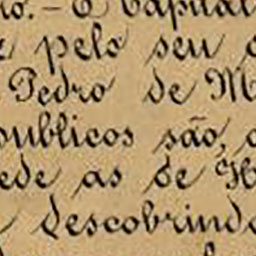 no. – O Capital
e pelo seu
Pedro de M
publicos são,
ede as de H
descobrindo